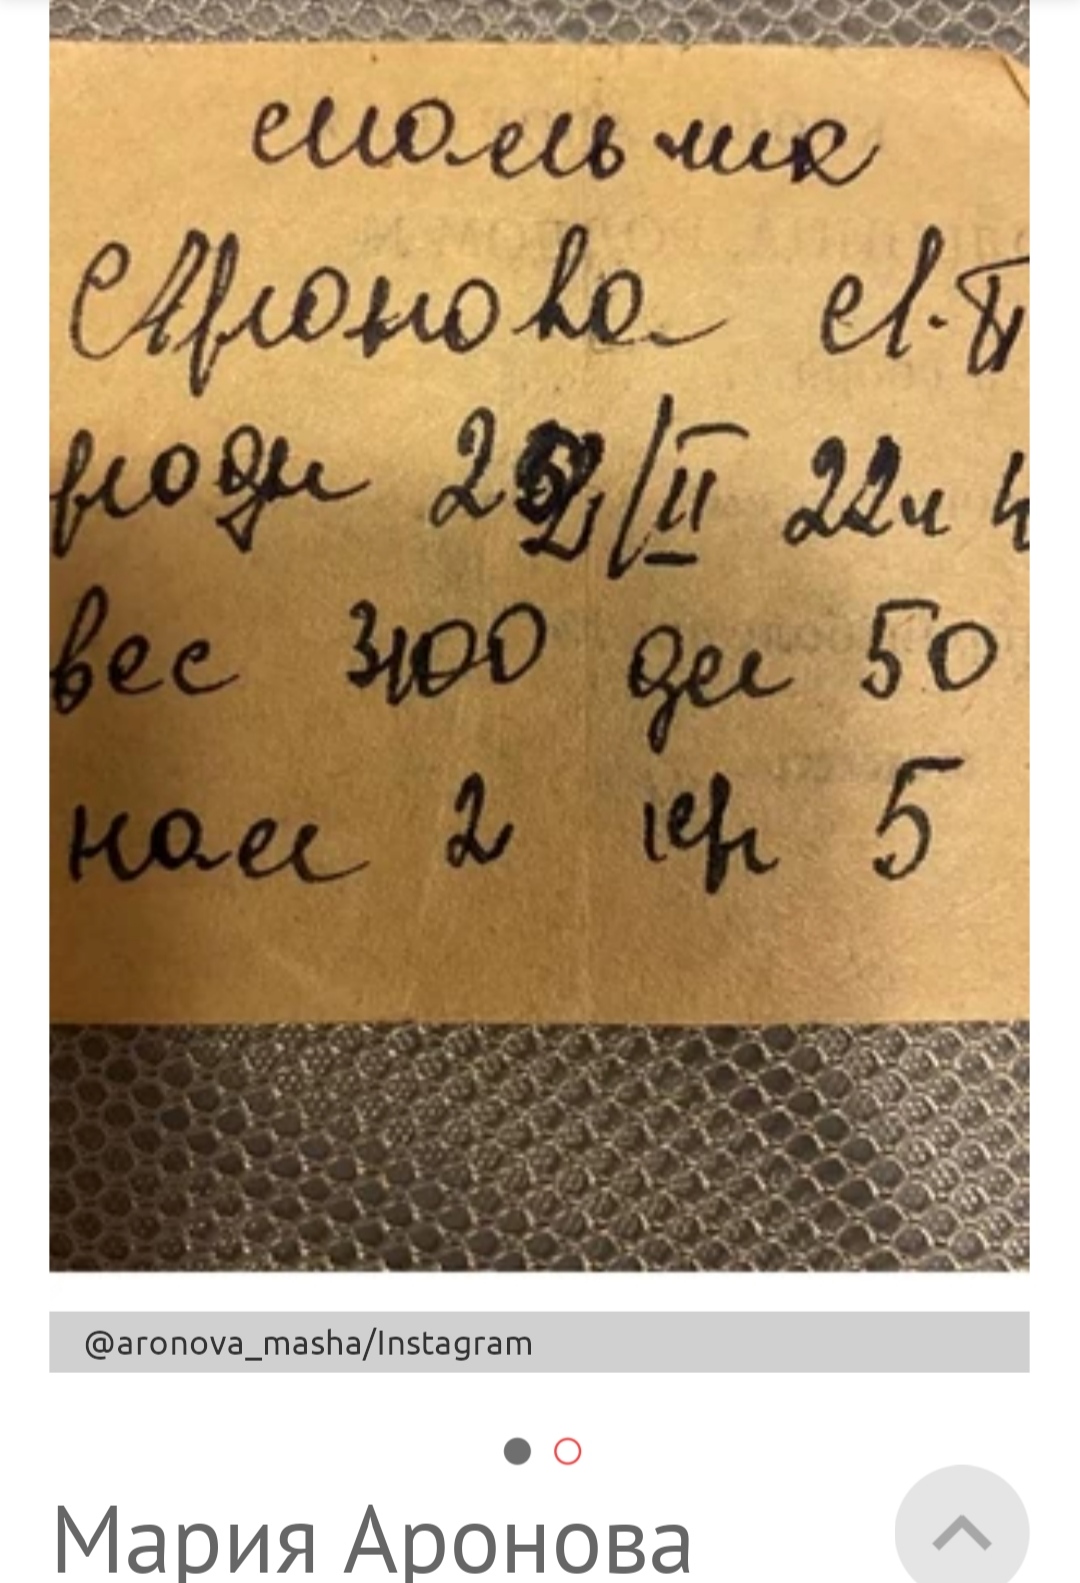 мальчик
Аронова Л.
роди /II 22ч
вес 3100 50
2 5
@aronova_masha/Instagram
Мария Аронова